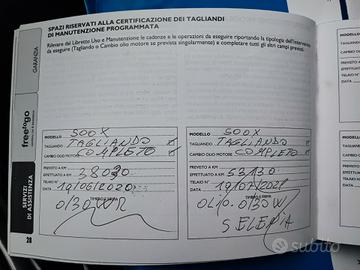 SPAZI RISERVATI ALLA CERTIFICAZIONE DEI TAGLIANDI
DI MANUTENZIONE PROGRAMMATA
Rilevare dal Libretto Uso e Manutenzione le cadenze e le operazioni da eseguire riportando la tipologia dell'intervento
da eseguire (Tagliando o Cambio olio motore se prevista singolarmente) e completare tutti gli altri campi previsti.
GARANZIA
freetogo
SERVIZI
DI ASSISTENZA
28
MODELLO 500X
TAGLIANDO TAGLIANDO
CAMBIO OLIO MOTORE COMPLETO
PREVISTO A KM
EFFETTUATO A KM 38030
TELAIO N°
DATA 19/06/2020
TIMBRO E FIRMA
0/30W
MODELLO 500X
TAGLIANDO TAGLIANDO
CAMBIO OLIO MOTORE COMPLETO
PREVISTO A KM
EFFETTUATO A KM 53130
TELAIO N°
DATA 19/07/2021
OLIO 0/30W
SELENIA
subito